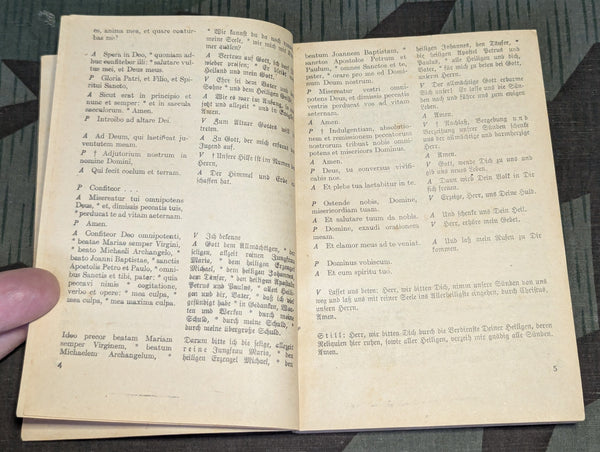 es, anima mea, et quare contur-
bas me?
A Spera in Deo, * quoniam ad-
huc confitebor illi: * salutare vul-
tus mei, et Deus meus.
P Gloria Patri, et Filio, et Spi-
ritui Sancto,
A Sicut erat in principio et
nunc et semper: * et in saecula
saeculorum. * Amen.
P Introibo ad altare Dei.
A Ad Deum, qui laetificat ju-
ventutem meam.
P † Adjutorium nostrum in
nomine Domini,
A Qui fecit coelum et terram.
P Confiteor . . .
A Misereatur tui omnipotens
Deus, * et, dimissis peccatis tuis,
* perducat te ad vitam aeternam.
P Amen.
A Confiteor Deo omnipotenti,
* beatae Mariae semper Virgini,
* beato Michaeli Archangelo, *
beato Joanni Baptistae, * sanctis
Apostolis Petro et Paulo, * omni-
bus Sanctis et tibi, pater: * quia
peccavi nimis * cogitatione,
verbo et opere: * mea culpa, *
mea culpa, * mea maxima culpa.
Ideo precor beatam Mariam
semper Virginem, * beatum
Michaelem Archangelum, *
* Wie kannst du da noch
meine Seele, * wie mich mit
mer quälen?
A Vertrau auf Gott, ich
wieder preisen; * Er bleibt
Heiland und mein Gott.
V Ehre sei dem Vater und
Sohne * und dem Heiligen
A Wie es war im Anfang,
jetzt und allezeit * und in
Amen.
V Zum Altare Gottes
treten.
A Zu Gott, der mich
Jugend auf.
V † Unsere Hilfe ist im Namen
Herrn,
A Der Himmel und Erde
schaffen hat.
V Ich bekenne
A Gott dem Allmächtigen, *
allzeit reinen Jungfrau
Maria, * dem heiligen Erzengel
Michael, * dem heiligen Johannes
dem Täufer, * den heiligen Aposteln
Petrus und Paulus, * allen Heili-
gen und dir, Vater, * daß ich
gesündigt habe * in Gedanken, Wor-
ten und Werken * durch meine
Schuld, * durch meine Schuld, *
durch meine übergroße Schuld.
Darum bitte ich die selige, allezeit
reine Jungfrau Maria, * den
heiligen Erzengel Michael, * den
4
beatum Joannem Baptistam, *
sanctos Apostolos Petrum et
Paulum, * omnes Sanctos et te,
pater, * orare pro me ad Domi-
num Deum nostrum.
P Misereatur vestri omni-
potens Deus, et dimissis peccatis
vestris perducat vos ad vitam
aeternam.
A Amen.
P † Indulgentiam, absolutio-
nem et remissionem peccatorum
nostrorum tribuat nobis omni-
potens et misericors Dominus.
A Amen.
P Deus, tu conversus vivifi-
cabis nos.
A Et plebs tua laetabitur in te.
P Ostende nobis, Domine,
misericordiam tuam.
A Et salutare tuum da nobis.
P Domine, exaudi orationem
meam.
A Et clamor meus ad te veniat.
P Dominus vobiscum.
A Et cum spiritu tuo.
heiligen Johannes, den Täufer, *
die heiligen Apostel Petrus und
Paulus, * alle Heiligen und dich,
Vater, * für mich zu beten bei Gott,
unserm Herrn.
V Der allmächtige Gott erbarme
sich unser! Er lasse uns die Sün-
den nach und führe uns zum ewigen
Leben.
A Amen.
V † Nachlaß, Vergebung und
Verzeihung unserer Sünden schenke
uns der allmächtige und barmherzige
Herr.
A Amen.
V Gott, wende Dich zu uns und
gib uns neues Leben.
A Dann wird Dein Volk in Dir
sich freuen.
V Erzeige, Herr, uns Deine Huld.
A Und schenke uns Dein Heil.
V Herr, erhöre mein Gebet.
A Und laß mein Rufen zu Dir
kommen.
V Lasset uns beten: Herr, wir bitten, nimm unsere Sünden von uns
weg und laß uns mit reiner Seele ins Allerheiligste eingehen, durch Christus.
Amen.
Still: Herr, wir bitten Dich durch die Verdienste Deiner Heiligen, deren
Reliquien hier ruhen, sowie aller Heiligen, verzeih mir alle Sünden.
Amen.
5